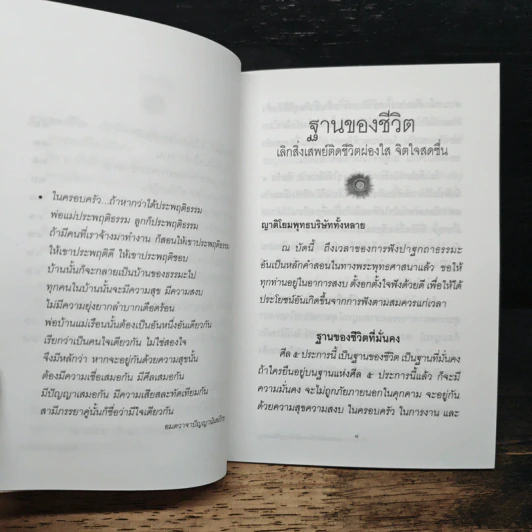 • ในครอบครัว...ถ้าหากว่าได้ประพฤติธรรม
พ่อแม่ประพฤติธรรม ลูกก็ประพฤติธรรม
ถ้ามีคนที่เราจ้างมาทำงาน ก็สอนให้เขาประพฤติธรรม
ให้เขาประพฤติดี ให้เขาประพฤติชอบ
บ้านนั้นก็จะกลายเป็นบ้านของธรรมะไป
ทุกคนในบ้านนั้นจะมีความสุข มีความสงบ
ไม่มีความยุ่งยากลำบากเดือดร้อน
พ่อบ้านแม่เรือนนั้นต้องเป็นอันหนึ่งอันเดียวกัน
เรียกว่าเป็นคนใจเดียวกัน ไม่ใช่สองใจ
จึงมีหลักว่า หากจะอยู่กันด้วยความสุขนั้น
ต้องมีความเชื่อเสมอกัน มีศีลเสมอกัน
มีปัญญาเสมอกัน มีความเสียสละทัดเทียมกัน
สามีภรรยาคู่นั้นก็ชื่อว่ามีใจเดียวกัน
อมตวาจาปัญญานันทภิกขุ
ฐานของชีวิต
เลิกสิ่งเสพย์ติดชีวิตผ่องใส จิตใจสดชื่น
ญาติโยมพุทธบริษัททั้งหลาย
ณ บัดนี้ ถึงเวลาของการฟังปาฐกถาธรรมะ
อันเป็นหลักคำสอนในทางพระพุทธศาสนาแล้ว ขอให้
ทุกท่านอยู่ในอาการสงบ ตั้งอกตั้งใจฟังด้วยดี เพื่อให้ได้
ประโยชน์อันเกิดขึ้นจากการฟังตามสมควรแก่เวลา
ฐานของชีวิตที่มั่นคง
ศีล ๕ ประการนี้ เป็นฐานของชีวิต เป็นฐานที่มั่นคง
ถ้าใครยืนอยู่บนฐานแห่งศีล ๕ ประการนี้แล้ว ก็จะมี
ความมั่นคง จะไม่ถูกภัยภายนอกในคุกคาม จะอยู่กัน
ด้วยความสุขความสงบ ในครอบครัว ในการงาน และ